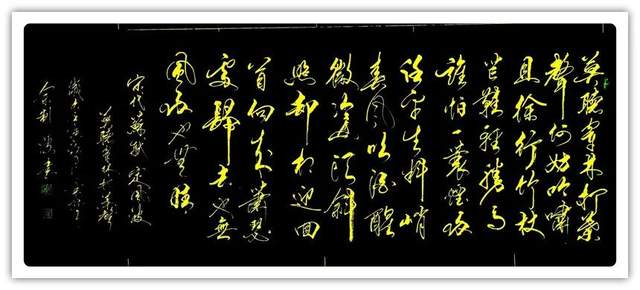 莫聽穿林打葉
聲何妨吟嘯
且徐行竹杖
芒鞋輕勝馬
誰怕一蓑煙雨
任平生料峭
春風吹酒醒
微冷山頭斜
照却相迎回
首向來蕭瑟
處歸去也無
風雨也無晴
宋代蘇軾定風波
莫聽穿林打葉聲